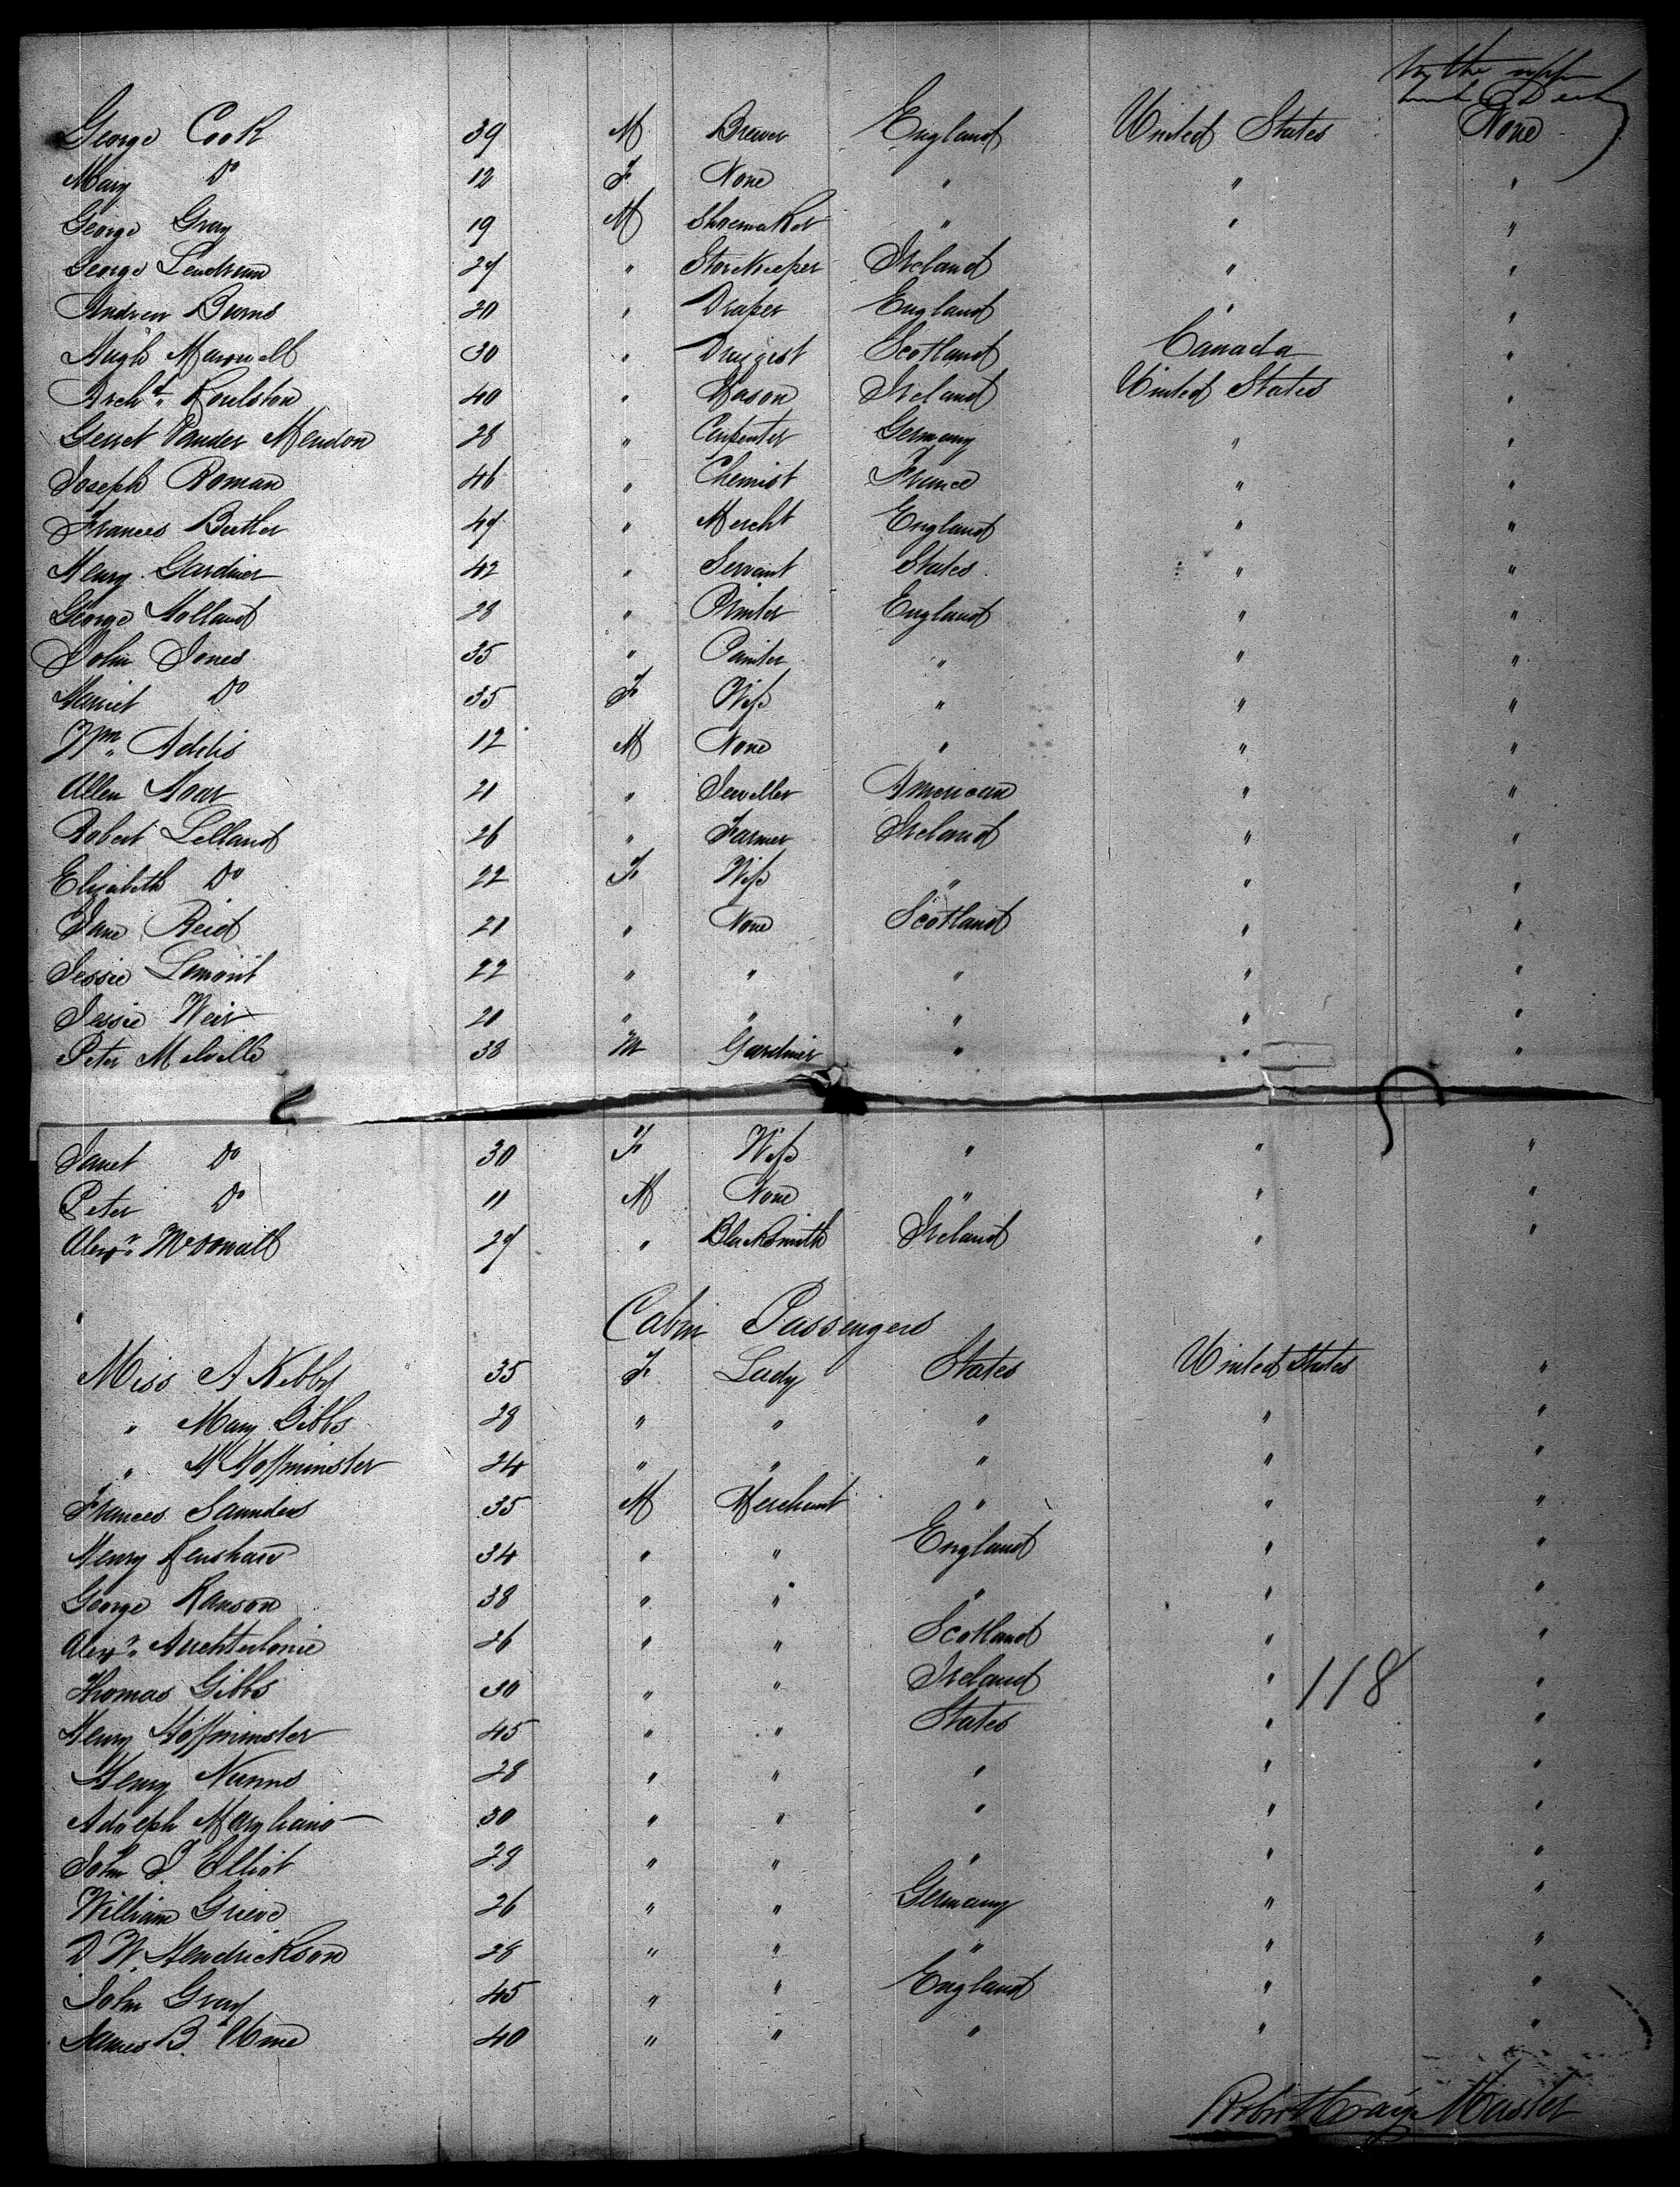 by the upper
George Cook 39 M Brewer England United States None
Mary Do 12 F None " " "
George Gray 19 M Shoemaker " " "
George Lendrum 27 " Storekeeper Ireland " "
Andrew Burns 20 " Draper England " "
Hugh Maxwell 30 " Druggist Scotland Canada "
Archd. Roulston 40 " Mason Ireland United States "
Gerret Vander Mendon 28 " Carpenter Germany " "
Joseph Roman 46 " Chemist France " "
Frances Butler 47 " Mercht England " "
Henry Gardiner 42 " Servant States " "
George Holland 28 " Printer England " "
John Jones 35 " Painter " " "
Harriet Do 35 F Wife " " "
Wm. Addis 12 M None " " "
Allen Hoar 21 " Jeweller American " "
Robert Lelland 26 " Farmer Ireland " "
Elizabeth Do 22 F Wife " " "
Jane Reid 21 " None Scotland " "
Jessie Lemont 22 " " " " "
Jessie Weir 20 " " " " "
Peter Melville 38 M Gardiner " " "
Janet Do 30 F Wife " " "
Peter Do 11 M None " " "
Alexr. McDowall 27 " Blacksmith Ireland " "
Cabin Passengers
Miss A Kebby 35 F Lady States United States "
" Mary Gibbs 28 " " " " "
" M Hoffminster 24 " " " " "
Frances Saunders 35 M Merchant " " "
Henry Renshaw 34 " " England " "
George Ranson 38 " " " " "
Alexr. Auchterlonie 26 " " Scotland " "
Thomas Gibbs 30 " " Ireland " "
118
Henry Hoffminster 45 " " States " "
Henry Nunns 28 " " " " "
Adolph Margliano 30 " " " " "
John J. Elliot 28 " " " " "
William Grieve 26 " " Germany " "
D W. Hendrickson 28 " " " " "
John Gray 45 " " England " "
James B. Hume 40 " " " " "
Robert Craig Master